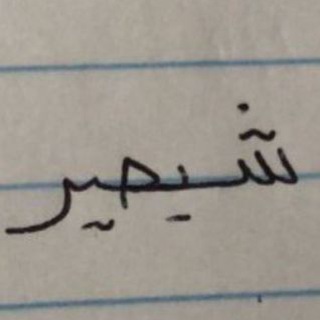 شيصير